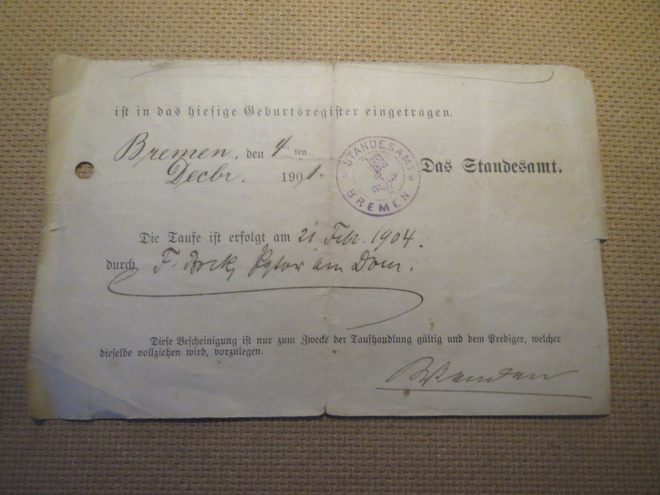 ist in das hiesige Geburtsregister eingetragen.
Bremen, den 4 ten
Decbr. 1901.
STANDESAMT
BREMEN
Das Standesamt.
Die Taufe ist erfolgt am 21 Febr. 1904.
durch F. Bock, Pstor am Dom.
Diese Bescheinigung ist nur zum Zwecke der Taufhandlung gültig und dem Prediger, welcher
dieselbe vollziehen wird, vorzulegen.